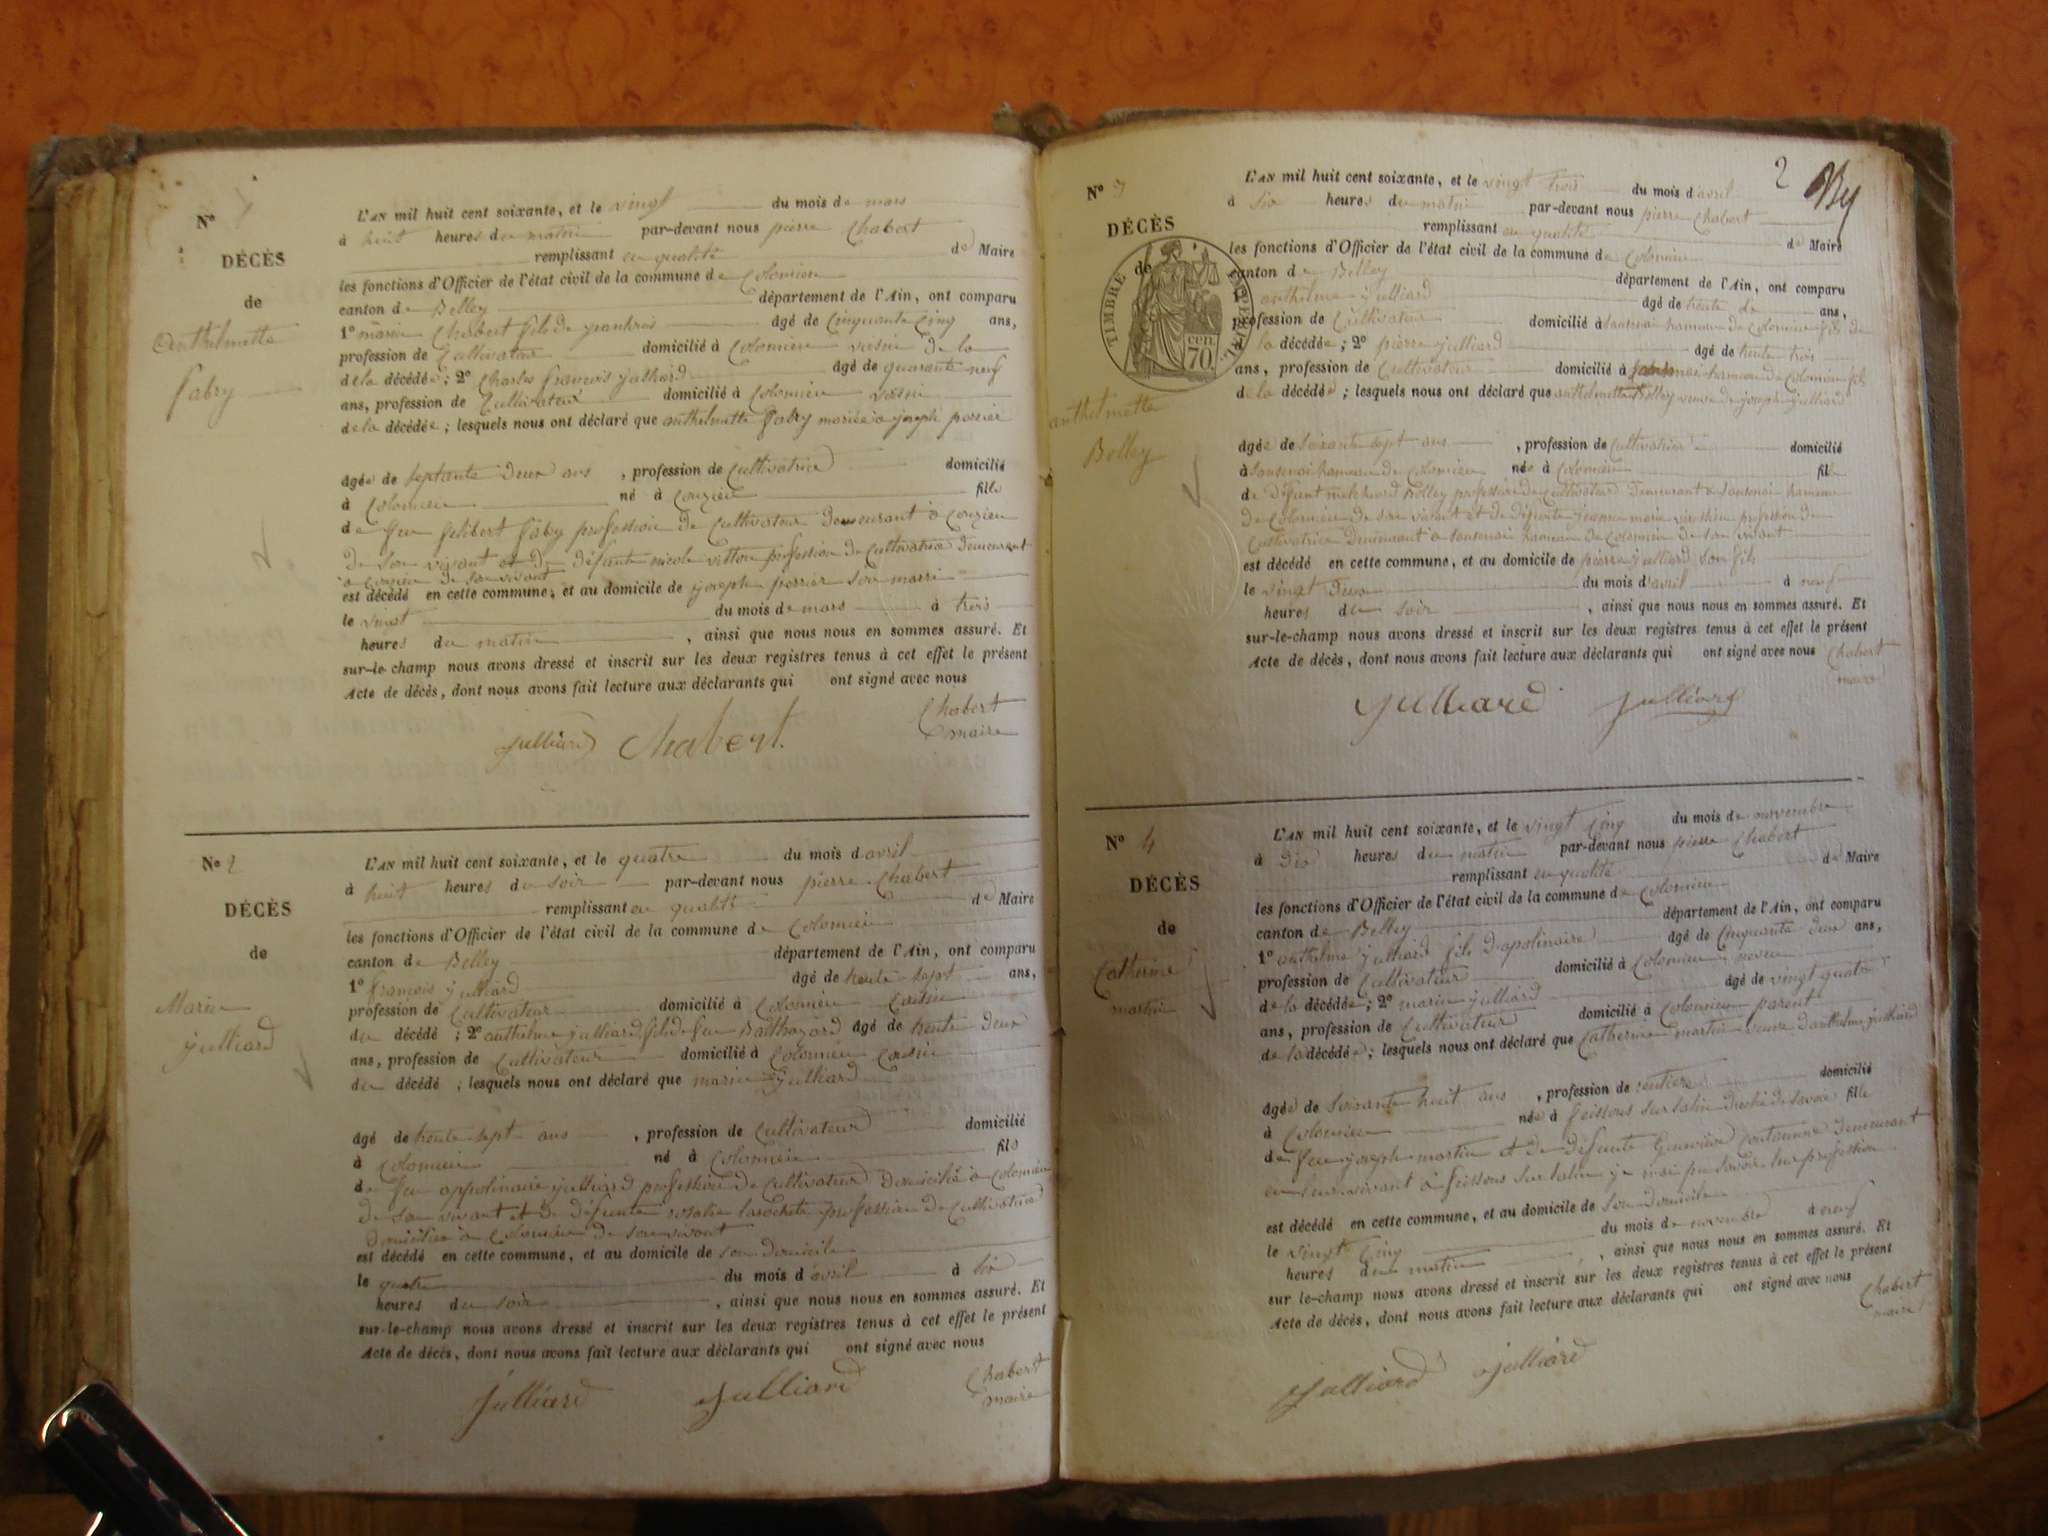 N° 1
DÉCÈS
de
Anthelmette
fabry
L'AN mil huit cent soixante, et le vingt du mois de mars
à huit heures du matin par-devant nous pierre Chabert
remplissant en qualité de Maire
les fonctions d'Officier de l'état civil de la commune de Colomieu
canton de Belley département de l'Ain, ont comparu
1° marin Chabert fils de âgé de Cinquante Cinq ans,
profession de Cultivateur domicilié à Colomieu voisin de la
de la décédée ; 2° Charles francois julliard âgé de quarante neuf
ans, profession de Cultivateur domicilié à Colomieu voisin
de la décédée ; lesquels nous ont déclaré que anthelmette fabry mariée à joseph perrier
âgée de septante Deux ans , profession de Cultivatrice domicilié
à Colomieu né à Conzieu fille
de feu filibert fabry profession de Cultivateur Demeurant à Conzieu
de son vivant et de défunte nicole vitton profession de Cultivatrice Demeurant
à Conzieu de son vivant
est décédé en cette commune, et au domicile de joseph perrier son marri
le vingt du mois de mars à trois
heures du matin , ainsi que nous nous en sommes assuré. Et
sur-le-champ nous avons dressé et inscrit sur les deux registres tenus à cet effet le présent
Acte de décès, dont nous avons fait lecture aux déclarants qui ont signé avec nous
Chabert
maire
julliard Chabert
N° 2
DÉCÈS
de
Marin
julliard
L'AN mil huit cent soixante, et le quatre du mois d avril
à huit heures du soir par-devant nous pierre Chabert
remplissant en qualité de Maire
les fonctions d'Officier de l'état civil de la commune de Colomieu
canton de Belley département de l'Ain, ont comparu
1° francois julliard âgé de trente sept ans,
profession de Cultivateur domicilié à Colomieu Cousin
du décédé ; 2° anthelme julliard fils de feu Balthazard âgé de trente Deux
ans, profession de Cultivateur domicilié à Colomieu Cousin
du décédé ; lesquels nous ont déclaré que marin julliard
âgé de trente sept ans , profession de Cultivateur domicilié
à Colomieu né à Colomieu fils
de feu appolinaire julliard profession de Cultivateur Domicilié à Colomieu
de son vivant et de défunte rosalie profession de Cultivatrice
Domiciliée à Colomieu de son vivant
est décédé en cette commune, et au domicile de son domicile
le quatre du mois d avril à six
heures du soir , ainsi que nous nous en sommes assuré. Et
sur-le-champ nous avons dressé et inscrit sur les deux registres tenus à cet effet le présent
Acte de décès, dont nous avons fait lecture aux déclarants qui ont signé avec nous
Chabert
maire
Julliard Julliard
2
N° 3
DÉCÈS
de
TIMBRE IMPÉRIAL
70 cen.
anthelmette
Bolley
L'AN mil huit cent soixante, et le vingt trois du mois d avril
à six heures du matin par-devant nous pierre Chabert
remplissant en qualité de Maire
les fonctions d'Officier de l'état civil de la commune de Colomieu
canton de Belley département de l'Ain, ont comparu
1° anthelme julliard âgé de trente ans,
profession de Cultivateur domicilié à hameau de Colomieu fils de
la décédée ; 2° pierre julliard âgé de trente trois
ans, profession de Cultivateur domicilié à hameau de Colomieu fils
de la décédée ; lesquels nous ont déclaré que anthelmette Bolley veuve de joseph julliard
âgée de soixante sept ans , profession de Cultivatrice domicilié
à hameau de Colomieu née à Colomieu fille
de Défunt Bolley profession de Cultivateur Demeurant à hameau
de Colomieu de son vivant et de défunte jeanne marie profession de
Cultivatrice Demeurant à hameau de Colomieu de son vivant
est décédé en cette commune, et au domicile de pierre julliard son fils
le vingt Deux du mois d avril à neuf
heures du soir , ainsi que nous nous en sommes assuré. Et
sur-le-champ nous avons dressé et inscrit sur les deux registres tenus à cet effet le présent
Acte de décès, dont nous avons fait lecture aux déclarants qui ont signé avec nous Chabert
maire
Julliard Julliard
N° 4
DÉCÈS
de
Catherine
martin
L'AN mil huit cent soixante, et le vingt Cinq du mois de novembre
à Dix heures du matin par-devant nous pierre Chabert
remplissant en qualité de Maire
les fonctions d'Officier de l'état civil de la commune de Colomieu
canton de Belley département de l'Ain, ont comparu
1° anthelme julliard fils d'apolinaire âgé de Cinquante Deux ans,
profession de Cultivateur domicilié à Colomieu neveu
de la décédée ; 2° marin julliard âgé de vingt quatre
ans, profession de Cultivateur domicilié à Colomieu parent
de la décédée ; lesquels nous ont déclaré que Catherine martin veuve d'anthelme julliard
âgée de soixante huit ans , profession de rentière domicilié
à Colomieu née à feissons sur salin Duché de Savoie fille
de feu joseph martin et de défunte Demeurant
de leur vivant à feissons sur salin je n'ai pu savoir leur profession
est décédé en cette commune, et au domicile de son domicile
le vingt Cinq du mois de novembre à neuf
heures du matin , ainsi que nous nous en sommes assuré. Et
sur le-champ nous avons dressé et inscrit sur les deux registres tenus à cet effet le présent
Acte de décès, dont nous avons fait lecture aux déclarants qui ont signé avec nous
Chabert
maire
Julliard julliard